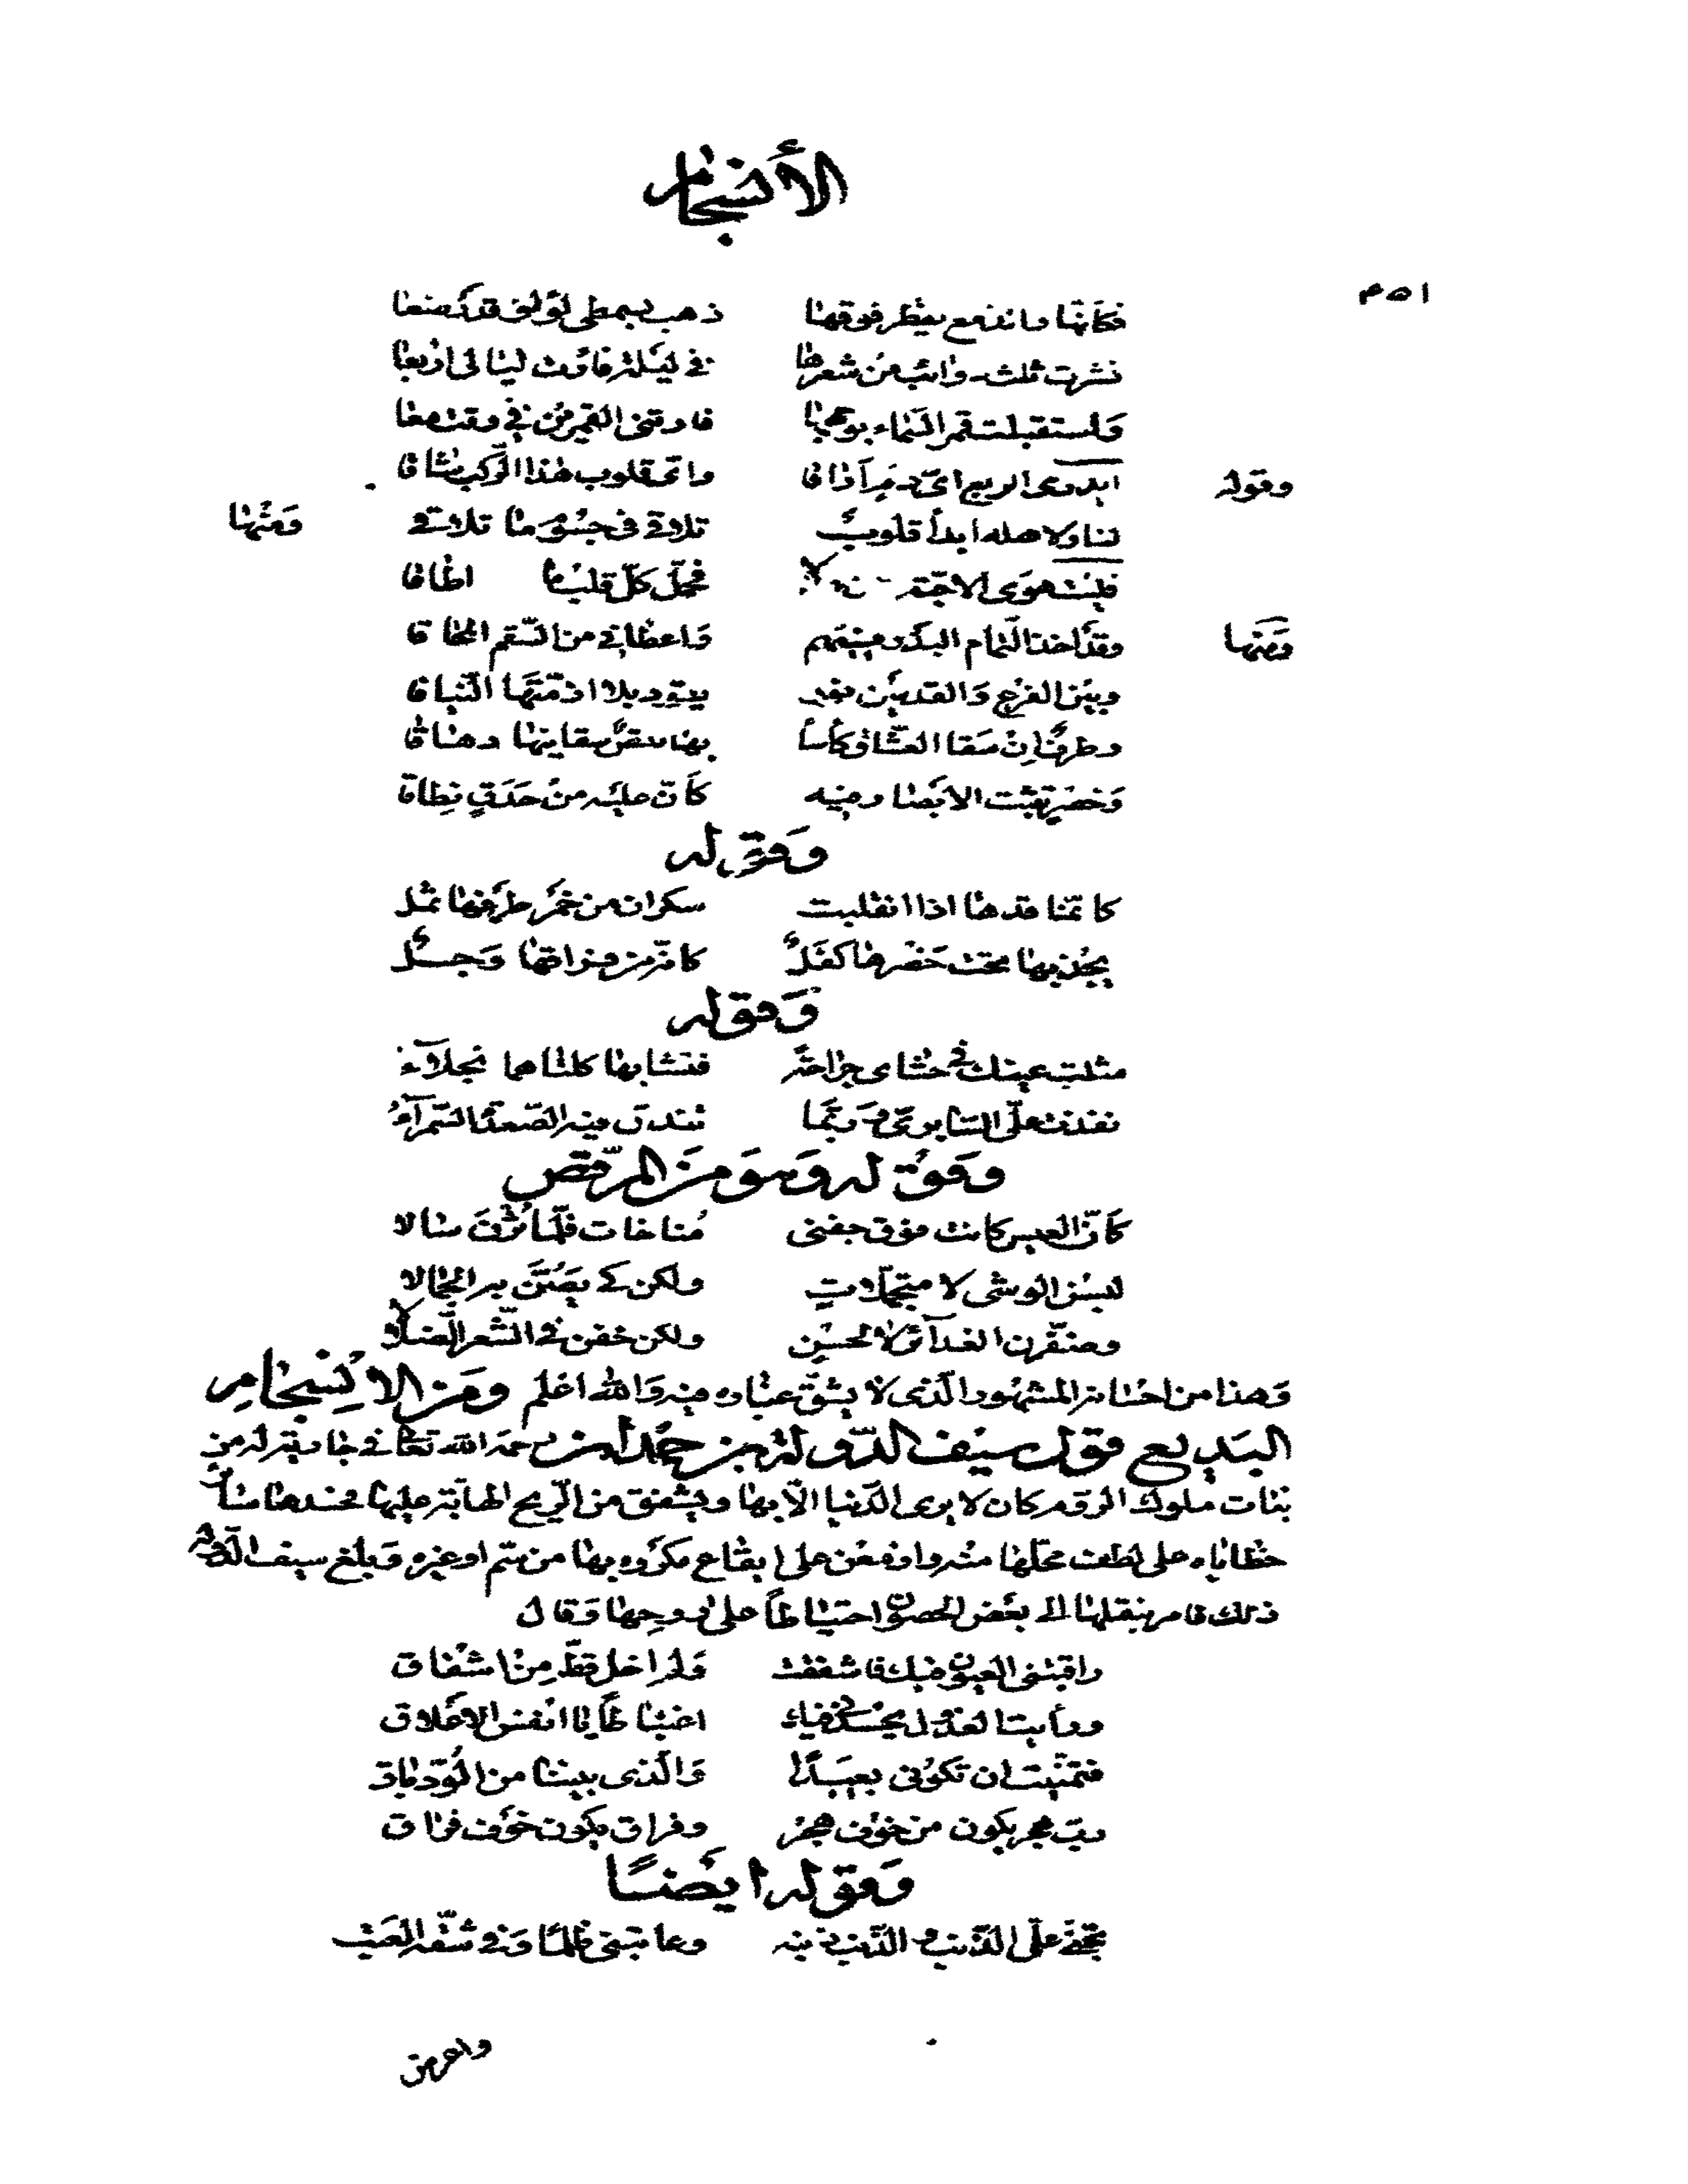 الأنسجام
١٥٢
فكأنها والدمع يقطر فوقها ذهب بسمطى لؤلؤ قد رصعا
نشرت ثلث ذوائب من شعرها في ليلة فأرت ليالى اربعا
واستقبلت قمر السماء بوجهها فارتنى القمرين في وقت معا
وقوله ايدرى الربع اى دم اراقا واى قلوب هذا الركب شاقا
لنا ولاهله ابدا قلوب تلاقى في جسوم ما تلاقى ومنها
فليت هوى الاحبة كان عدلا فحمل كل قلب ما اطاقا
ومنها وقد اخذ التمام البدر فيهم واعطانى من السقم المحاقا
وبين الفرع والقدمين نور يقود بلا ازمتها النياقا
وطرف إن سقا العشاق كأسا بها نقص سقانيها دهاقا
وخصر تثبت الابصار فيه كأن عليه من حدق نطاقا
وقوله
كانما قدها اذا انفتلت سكران من خمر طرفها ثمل
يجذبها تحت خصرها كفل كانه من فراقها وجل
وقوله
مثلت عينك في حشاى جراحة فتشابها كلتاهما نجلاء
نفذت على السابرى وربما تندق فيه الصعدة السمراء
وقوله وهو من المرقص
كأن العيس كانت فوق جفنى مناخات فلما ثرن سالا
لبسن الوشى لا متجملات ولكن كى يصن به الجمالا
وضفرن الغدائر لا لحسن ولكن خفن في الشعر الضلالا
وهذا من احسانه المشهور الذى لا يشق غباره فيه والله اعلم ومن الانسجام
البديع قول سيف الدولة بن حمدان رحمه الله تعالى في جارية له من
بنات ملوك الروم كان لا يرى الدنيا الا بها ويشفق من الريح الهابة عليها فحسدها سائر
حظاياه على لطف محلها منه وازمعن على ايقاع مكروه بها من سم او غيره وبلغ سيف الدولة
ذلك فامر بنقلها الى بعض الحصون احتياطا على روحها وقال
راقبتنى العيون فيك فاشفقت ولم اخل قط من اشفاق
ورأيت العذول يحسدنى فيك اغتباطا يا انفس الاعلاق
فتمنيت ان تكونى بعيدا والذى بيننا من الود باق
رب هجر يكون من خوف هجر وفراق يكون خوف فراق
وقوله ايضا
تجنى على الذنب والذنب ذنبه وعاتبنى ظلما وفي شقه العتب
واعرض